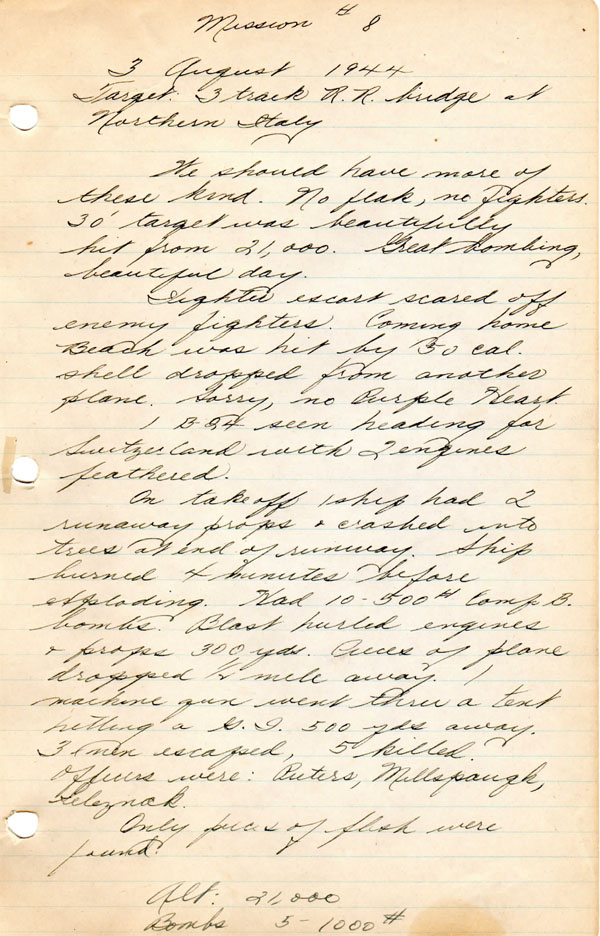 Mission # 8
3 August 1944
Target: 3 track R.R. bridge at
Northern Italy
We should have more of
these kind. No flak, no fighters.
30' target was beautifully
hit from 21,000. Great bombing,
beautiful day.
Fighter escort scared off
enemy fighters. Coming home
Beach was hit by 50 cal.
shell dropped from another
plane. Sorry, no Purple Heart
1 B-24 seen heading for
Switzerland with 2 engines
feathered.
On takeoff 1 ship had 2
runaway props & crashed into
trees at end of runway. Ship
burned 4 minutes before
exploding. Had 10-500# Comp. B.
bombs. Blast hurled engines
& props 300 yds. Pieces of plane
dropped 1/2 mile away. 1
machine gun went thru a tent
hitting a G.I. 500 yds away.
3 men escaped, 5 killed.
Officers were: Peters, Millspaugh,
Only pieces of flesh were
found.
Alt: 21,000
Bombs 5-1000#